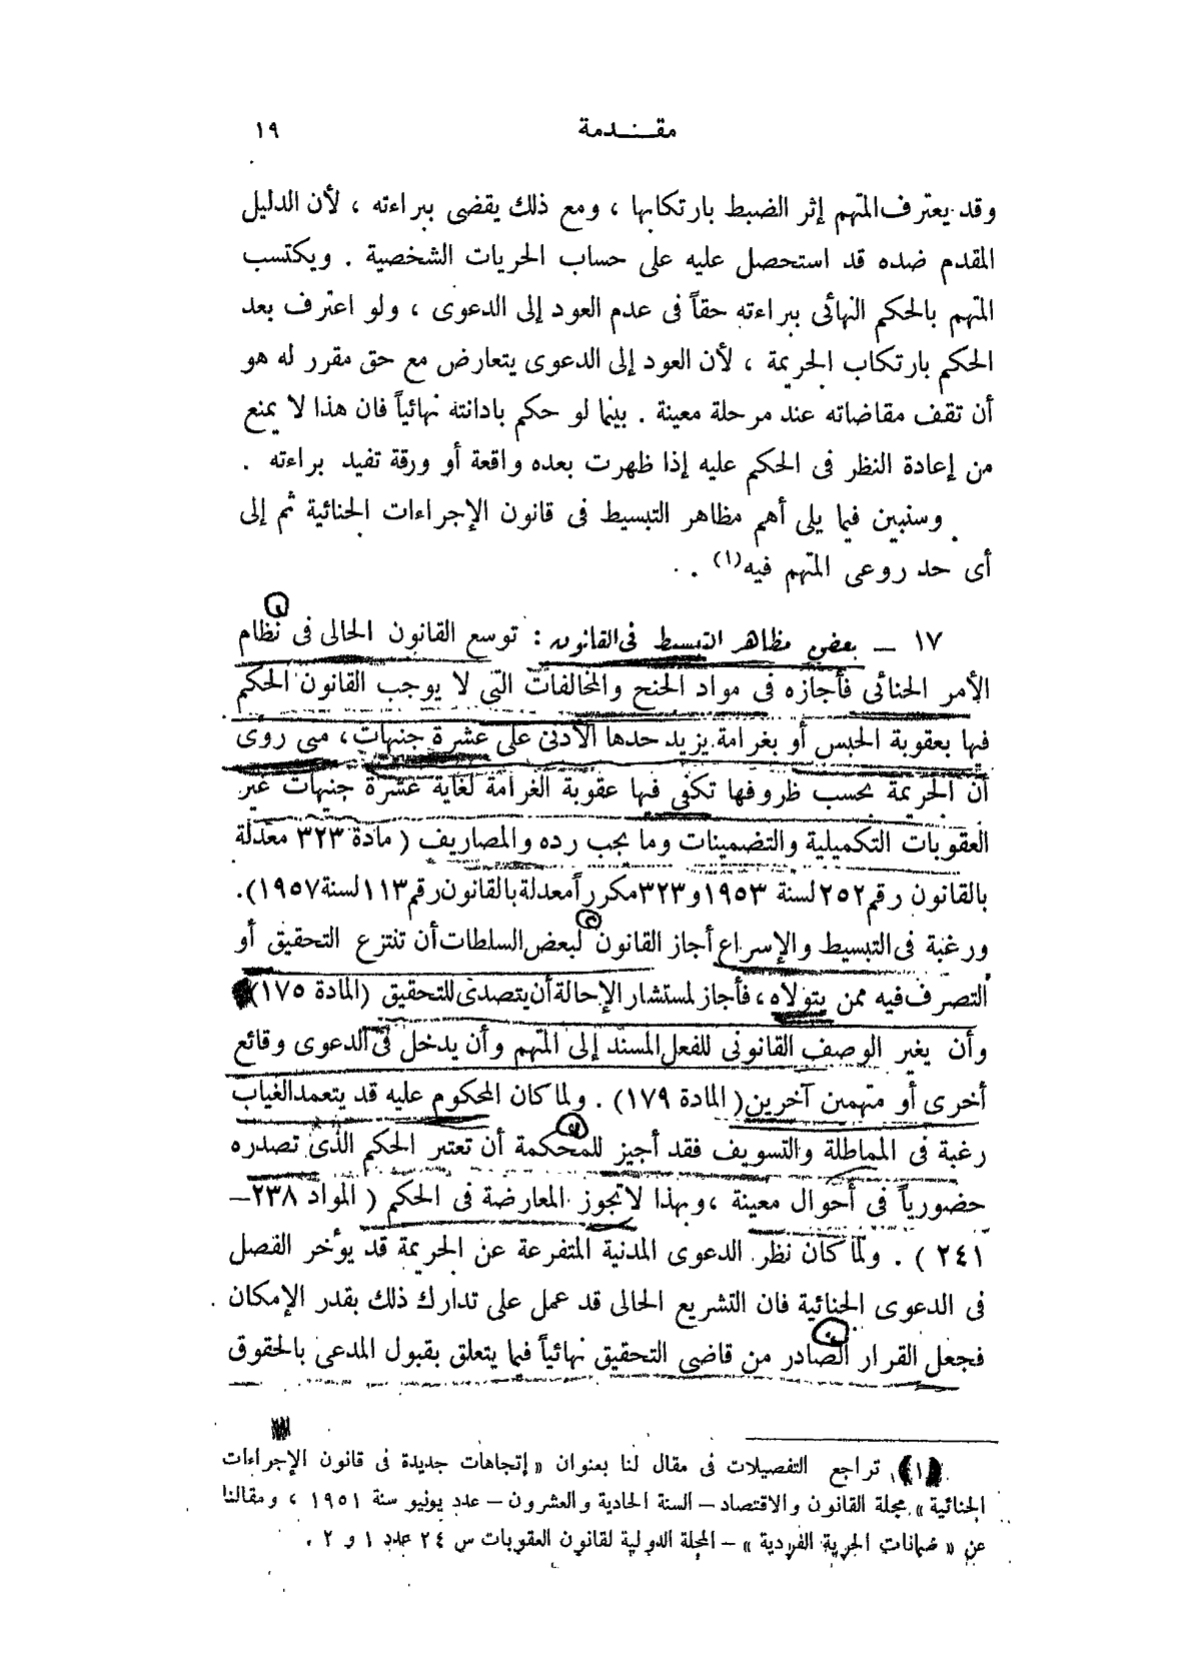 مقـنـدمة ١٩
وقد يعترف المتهم إثر الضبط بارتكابها ، ومع ذلك يقضى ببراءته ، لأن الدليل
المقدم ضده قد استحصل عليه على حساب الحريات الشخصية . ويكتسب
المتهم بالحكم النهائى ببراءته حقاً فى عدم العود إلى الدعوى ، ولو اعترف بعد
الحكم بارتكاب الجريمة ، لأن العود إلى الدعوى يتعارض مع حق مقرر له هو
أن تقف مقاضاته عند مرحلة معينة . بينما لو حكم بادانته نهائياً فان هذا لا يمنع
من إعادة النظر فى الحكم عليه إذا ظهرت بعده واقعة أو ورقة تفيد براءته .
وسنبين فيما يلى أهم مظاهر التبسيط فى قانون الإجراءات الجنائية ثم إلى
أى حد روعى المتهم فيه(١) .
١٧ — بعض مظاهر التبسط فى القانون : توسع القانون الحالى فى نظام
الأمر الجنائى فأجازه فى مواد الجنح والمخالفات التى لا يوجب القانون الحكم
فيها بعقوبة الحبس أو بغرامة يزيد حدها الأدنى على عشرة جنيهات ، متى روى
أن الجريمة بحسب ظروفها تكفى فيها عقوبة الغرامة لغاية عشرة جنيهات غير
العقوبات التكميلية والتضمينات وما يجب رده والمصاريف ( مادة ٣٢٣ معدلة
بالقانون رقم ٢٥٢ لسنة ١٩٥٣ و ٣٢٣ مكرراً معدلة بالقانون رقم ١١٣ لسنة ١٩٥٧).
ورغبة فى التبسيط والإسراع أجاز القانون لبعض السلطات أن تنتزع التحقيق أو
التصرف فيه ممن يتولاه ، فأجاز لمستشار الإحالة أن يتصدى للتحقيق (المادة ١٧٥)
وأن يغير الوصف القانونى للفعل المسند إلى المتهم وأن يدخل فى الدعوى وقائع
أخرى أو متهمين آخرين ( المادة ١٧٩ ) . ولما كان المحكوم عليه قد يتعمد الغياب
رغبة فى المماطلة والتسويف فقد أجيز للمحكمة أن تعتبر الحكم الذى تصدره
حضورياً فى أحوال معينة ، وبهذا لا تجوز المعارضة فى الحكم ( المواد ٢٣٨ —
٢٤١ ) . ولما كان نظر الدعوى المدنية المتفرعة عن الجريمة قد يؤخر الفصل
فى الدعوى الجنائية فان التشريع الحالى قد عمل على تدارك ذلك بقدر الإمكان .
فجعل القرار الصادر من قاضى التحقيق نهائياً فيما يتعلق بقبول المدعى بالحقوق
(١) تراجع التفصيلات فى مقال لنا بعنوان « إتجاهات جديدة فى قانون الإجراءات
الجنائية » مجلة القانون والاقتصاد — السنة الحادية والعشرون — عدد يونيو سنة ١٩٥١ ، ومقالنا
عن « ضمانات الحرية الفردية » — المجلة الدولية لقانون العقوبات س ٢٤ عدد ١ و ٢ .